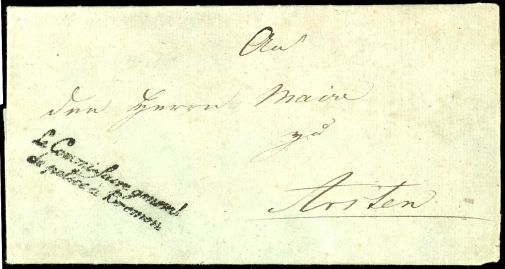 An
den Herrn Maire
zu
Arsten
Le Commissaire general
de police à Bremen